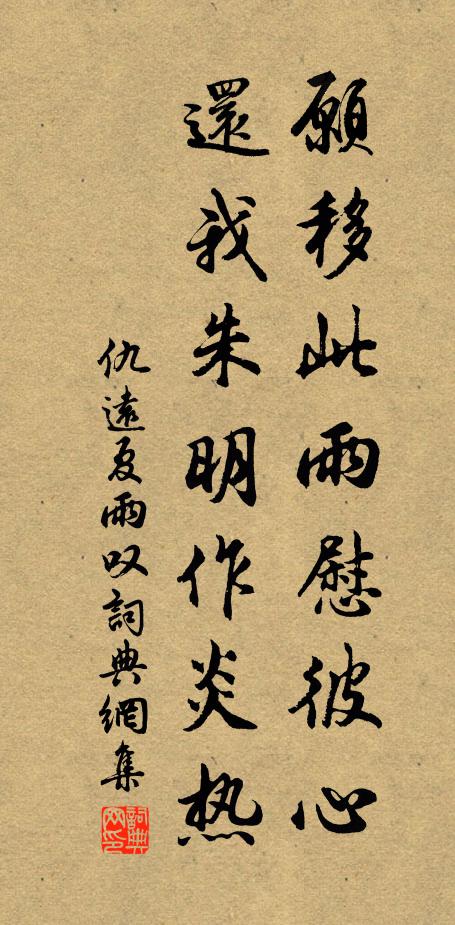 願移此雨慰彼心
還我朱明作炎热
仇遠夏雨叹詞典網集
詞典
网印